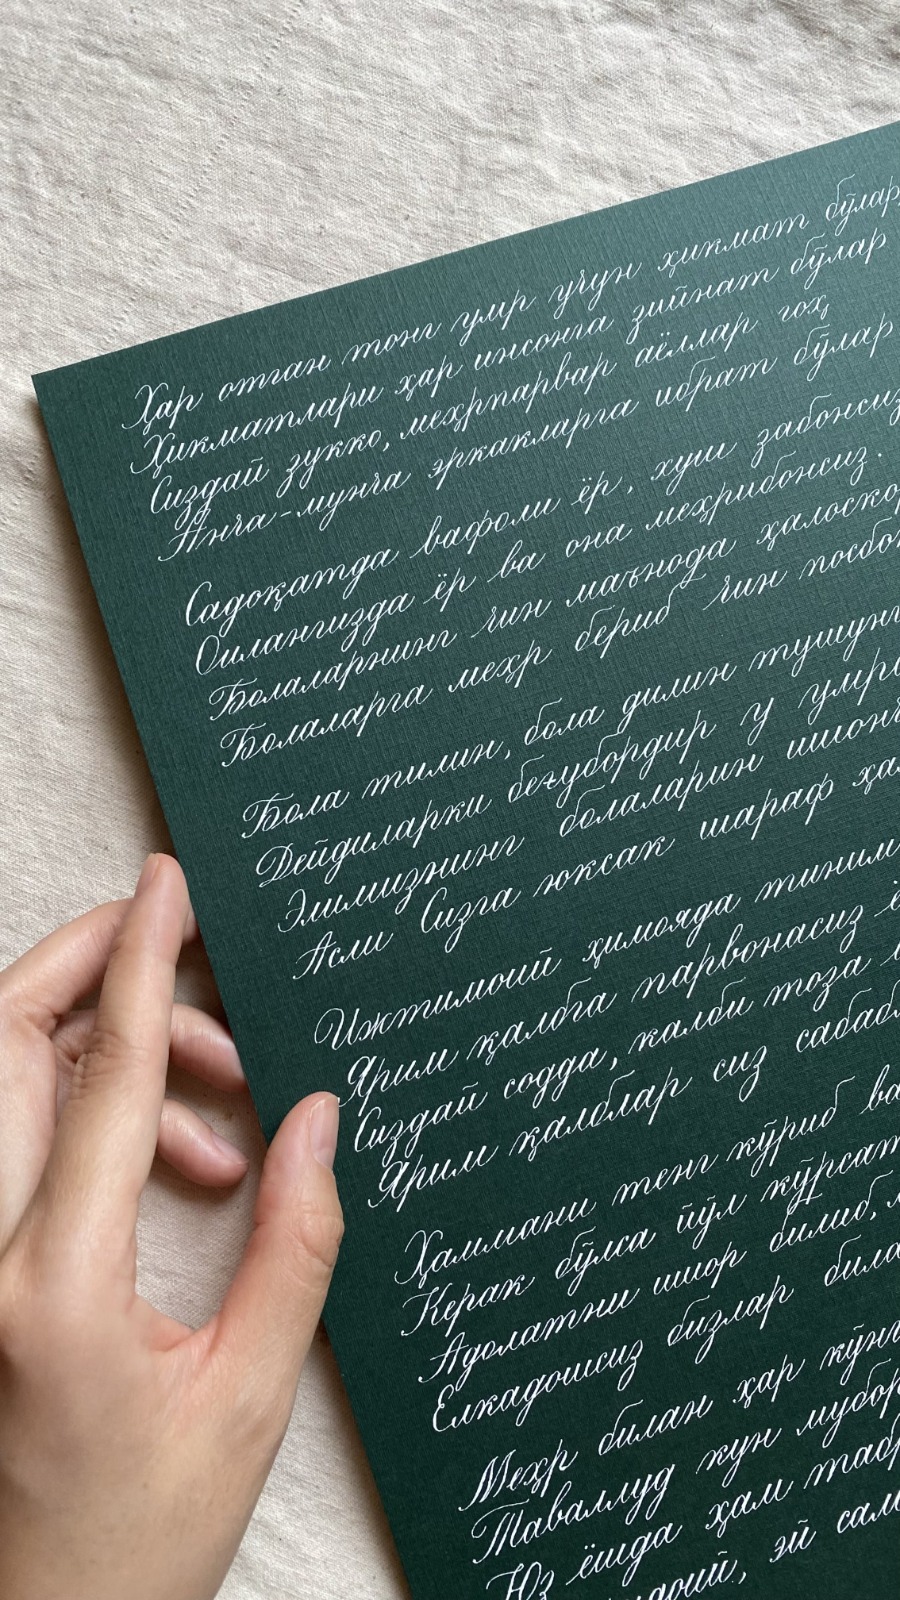 Ҳар отган тонг умр учун ҳикмат бўлар,
Ҳикматлари ҳар инсонга зийнат бўлар
Сиздай зукко, меҳрпарвар аёллар гоҳ
Анча-мунча эркакларга ибрат бўлар
Садоқатда вафоли ёр, хуш забонсиз
Оилангизда ёр ва она меҳрибонсиз.
Болаларнинг чин маънода ҳалоско
Болаларга меҳр бериб чин посбо
Бола тилин, бола дилин тушун
Дейдиларки беғубордир у умр
Элимизнинг болаларин ишон
Асли Сизга юксак шараф ҳа
Ижтимоий ҳимояда тиним
Ярим қалбга парвонасиз ё
Сиздай содда, қалби тоза
Ярим қалблар сиз сабаб
Ҳаммани тенг кўриб ва
Керак бўлса йўл кўрсат
Адолатни шиор билиб,
Елкадошсиз бизлар била
Меҳр билан ҳар кўнг
Таваллуд кун мубор
Юз ёшда ҳам табр
эй сам